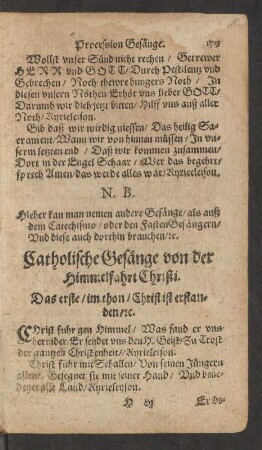 Procession Gesänge. 179
Wollst vnser Sünd nicht rechen / Getrewer
HERR vnd GOTT / Durch Pestilentz vnd
Gebrechen / Noch thewre hungers Noth / In
diesen vnsern Nöthen Erhör vns lieber GOTT /
Darumb wir dich jetzt bitten / Hilff vns auß aller
Noth / Kyrieleison.
Gib daß wir wirdig niessen / Das heilig Sa-
crament / Wann wir von hinnan müssen / In vn-
serm letzten end / Daß wir kommen zusammen /
Dort in der Engel Schaar / Wer das begehrt /
sprech Amen / das werde alles war / Kyrieleison.
N. B.
Hieher kan man nemen andere Gesänge / als auß
dem Catechismo / oder den FastenGesängern /
Vnd diese auch dorthin brauchen / ꝛc.
Catholische Gesänge von der
Himmelfahrt Christi.
Das erste / im thon / Christ ist erstan-
den / ꝛc.
Christ fuhr gen Himmel / Was sand er vns
hernider / Er sendet vns den H. Geist / Zu Trost
der gantzen Christenheit / Kyrieleison.
Christ fuhr mit Schallen / Von seinen Jüngern
allen / Gesegnet sie mit seiner Hand / Vnd
alle Land / Kyrieleyson.
H